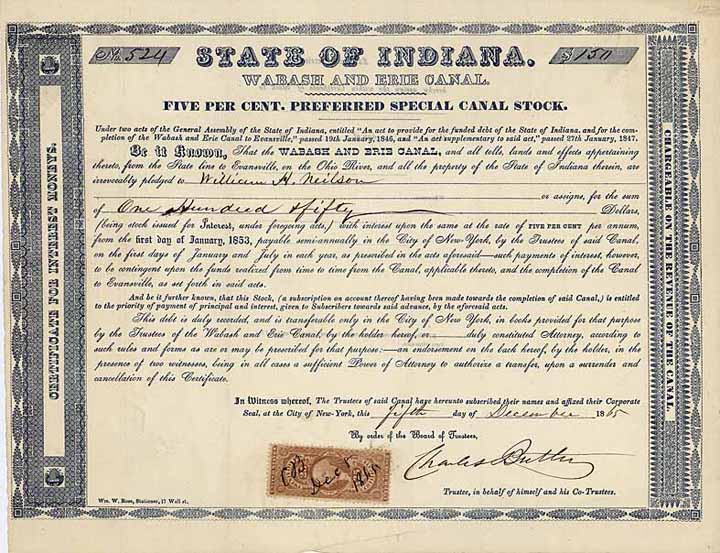 No. 524
STATE OF INDIANA.
$ 150
WABASH AND ERIE CANAL.
FIVE PER CENT. PREFERRED SPECIAL CANAL STOCK.
Under two acts of the General Assembly of the State of Indiana, entitled "An act to provide for the funded debt of the State of Indiana, and for the com-
pletion of the Wabash and Erie Canal to Evansville," passed 19th January, 1846, and "An act supplementary to said act," passed 27th January, 1847.
Be it Known, That the WABASH AND ERIE CANAL, and all tolls, lands and effects appertaining
thereto, from the State line to Evansville, on the Ohio River, and all the property of the State of Indiana therein, are
irrevocably pledged to William H. Neilson
or assigns, for the sum
of One Hundred & fifty Dollars,
(being stock issued for Interest, under foregoing acts,) with interest upon the same at the rate of FIVE PER CENT per annum,
from the first day of January, 1853, payable semi-annually in the City of New-York, by the Trustees of said Canal.
on the first days of January and July in each year, as prescribed in the acts aforesaid—such payments of interest, however,
to be contingent upon the funds realized from time to time from the Canal, applicable thereto, and the completion of the Canal
to Evansville, as set forth in said acts.
And be it further known, that this Stock, (a subscription on account thereof having been made towards the completion of said Canal,) is entitled
to the priority of payment of principal and interest, given to Subscribers towards said advance, by the aforesaid acts.
This debt is duly recorded, and is transferable only in the City of New York, in books provided for that purpose
by the Trustees of the Wabash and Erie Canal, by the holder hereof, or duly constituted Attorney, according to
such rules and forms as are or may be prescribed for that purpose:—an endorsement on the back hereof, by the holder, in the
presence of two witnesses, being in all cases a sufficient Power of Attorney to authorize a transfer, upon a surrender and
cancellation of this Certificate.
In Witness whereof, The Trustees of said Canal have hereunto subscribed their names and affixed their Corporate
Seal, at the City of New-York, this fifth day of December 1865
By order of the Board of Trustees,
Charles Butler
Trustee, in behalf of himself and his Co-Trustees.
C.B.
Dec 5
1865
Wm. W. Rose, Stationer, 17 Wall st.
CERTIFICATE FOR INTEREST MONEYS.
CHARGEABLE ON THE REVENUE OF THE CANAL.